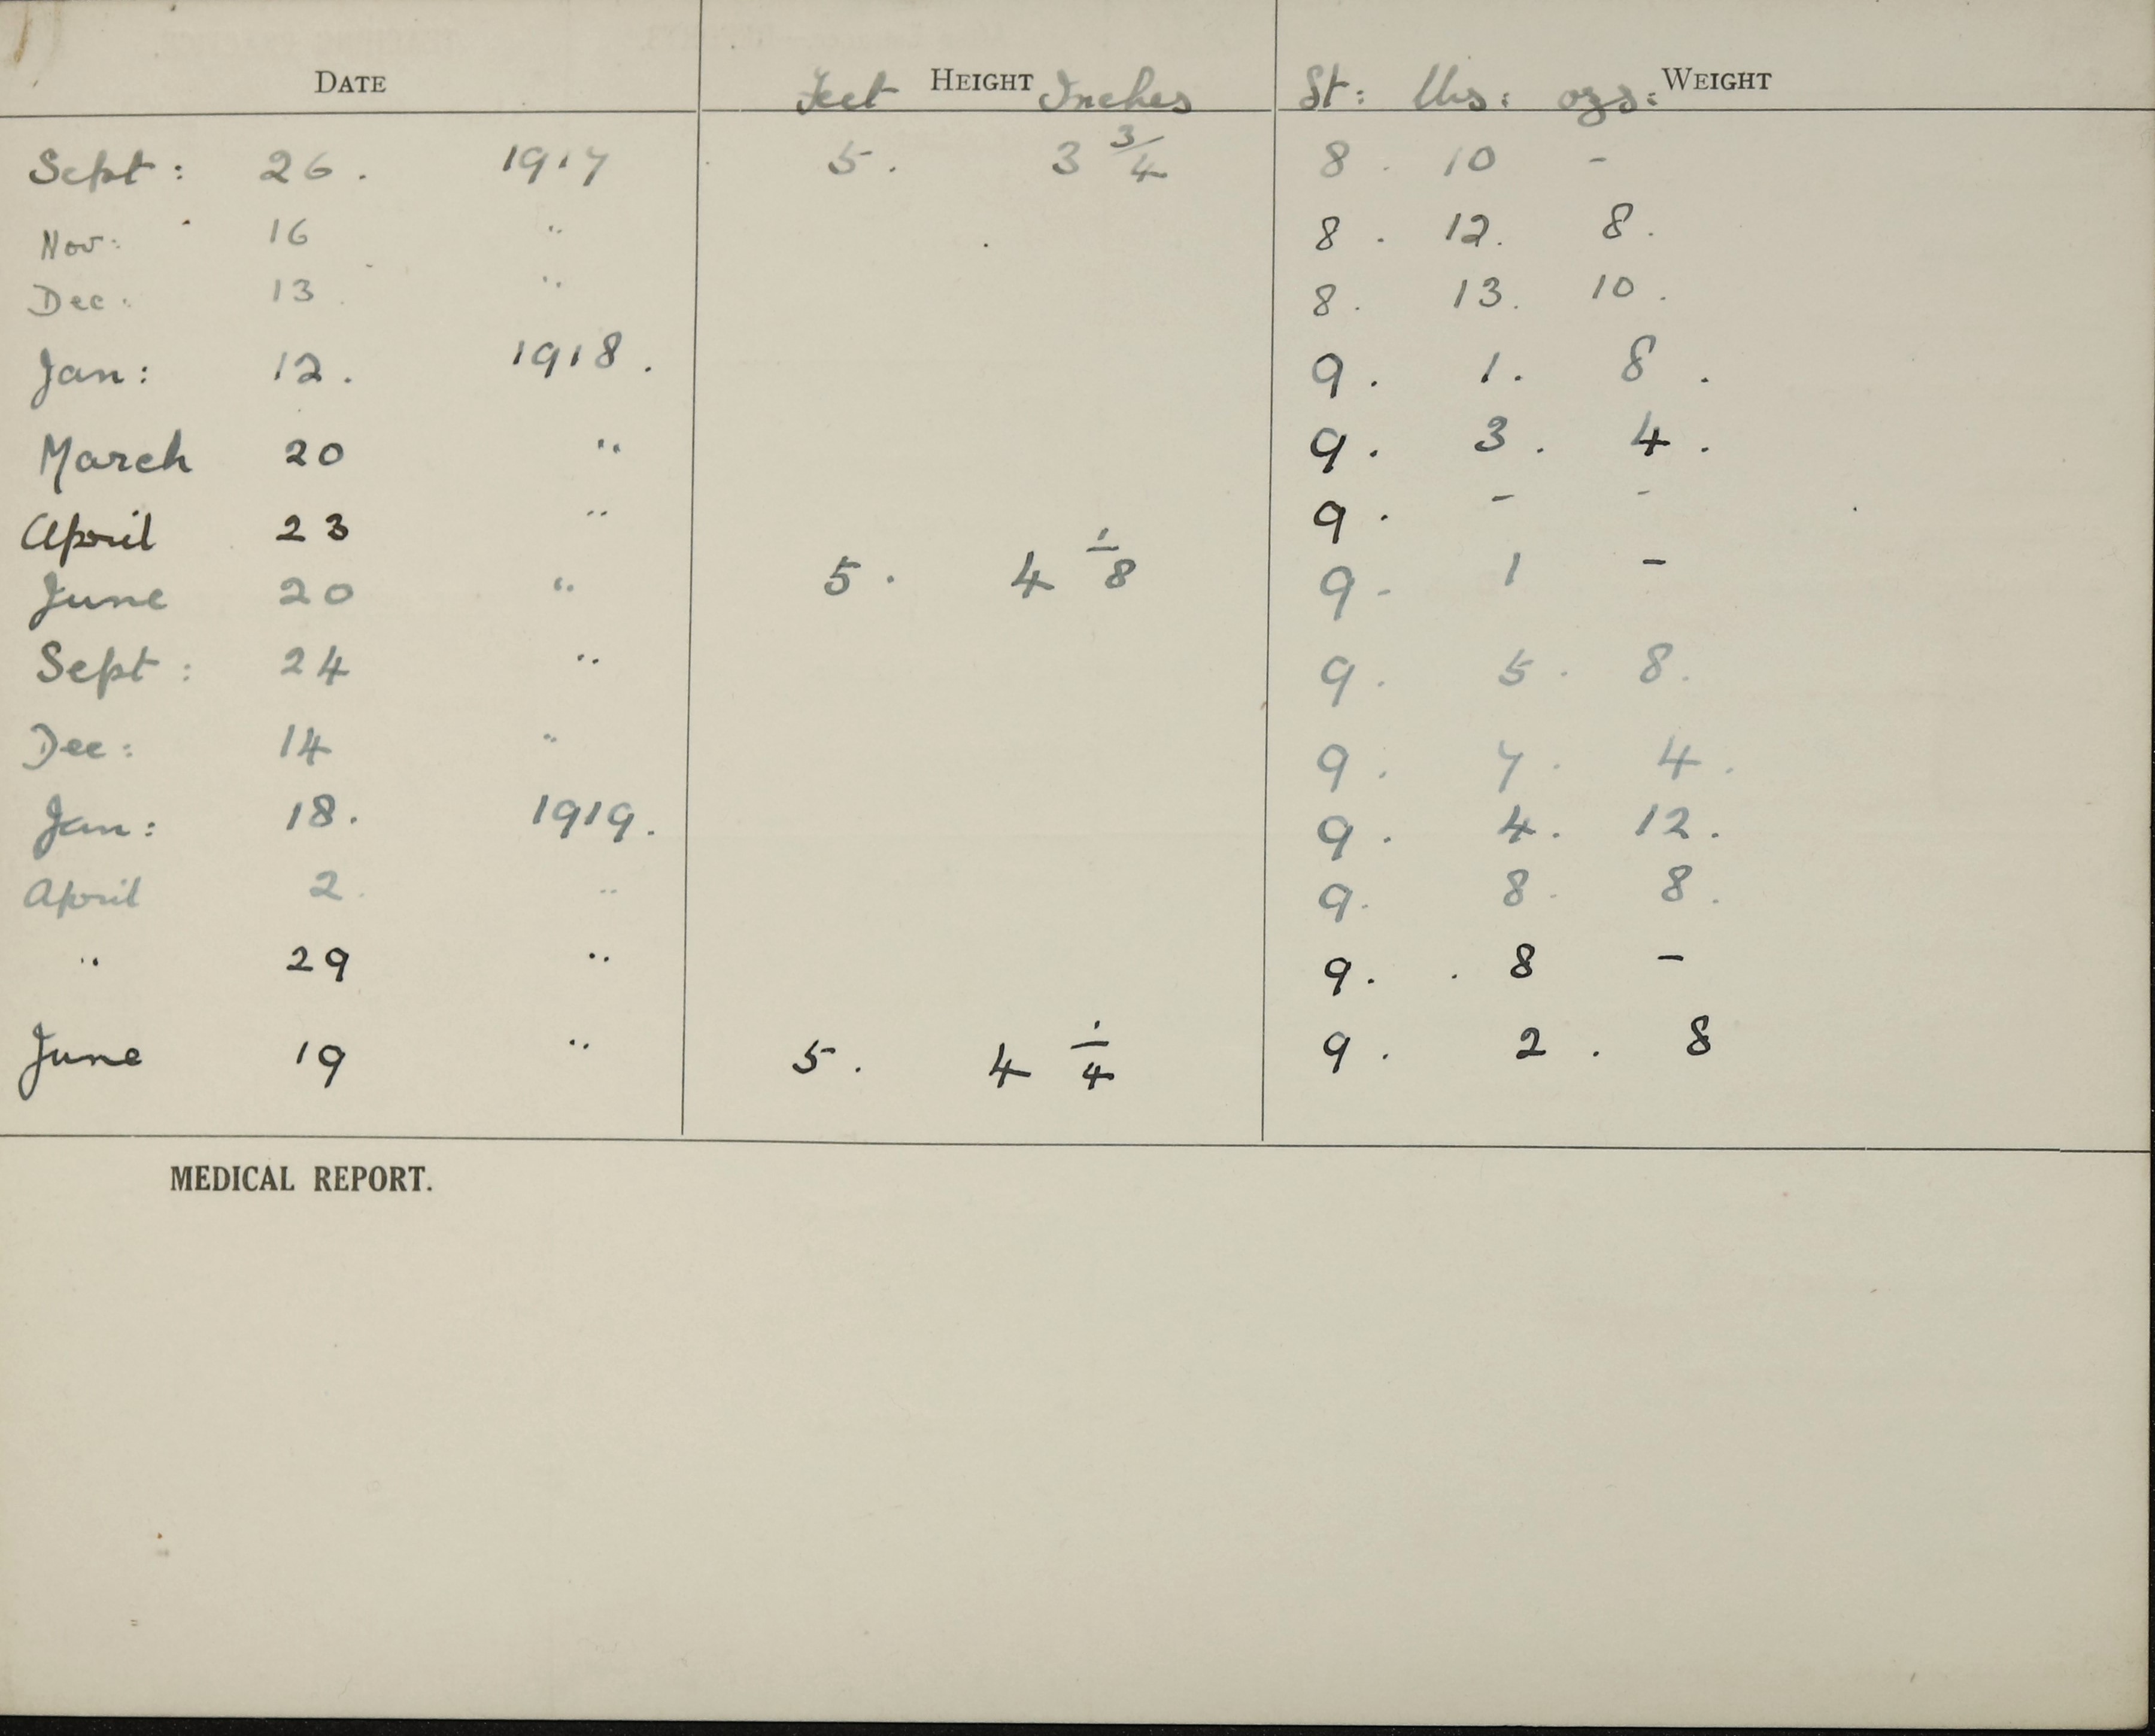 DATE Feet HEIGHT Inches St: lbs: ozs: WEIGHT
Sept: 26. 1917 5. 3 3/4 8. 10 -
Nov: 16 " 8. 12. 8.
Dec: 13 " 8. 13. 10.
Jan: 12. 1918. 9. 1. 8.
March 20 " 9. 3. 4.
April 23 " 9. - -
June 20 " 5. 4 1/8 9. 1 -
Sept: 24 " 9. 5. 8.
Dec: 14 " 9. 7. 4.
Jan: 18. 1919. 9. 4. 12.
April 2. " 9. 8. 8.
" 29 " 9. 8 -
June 19 " 5. 4 1/4 9. 2. 8
MEDICAL REPORT.